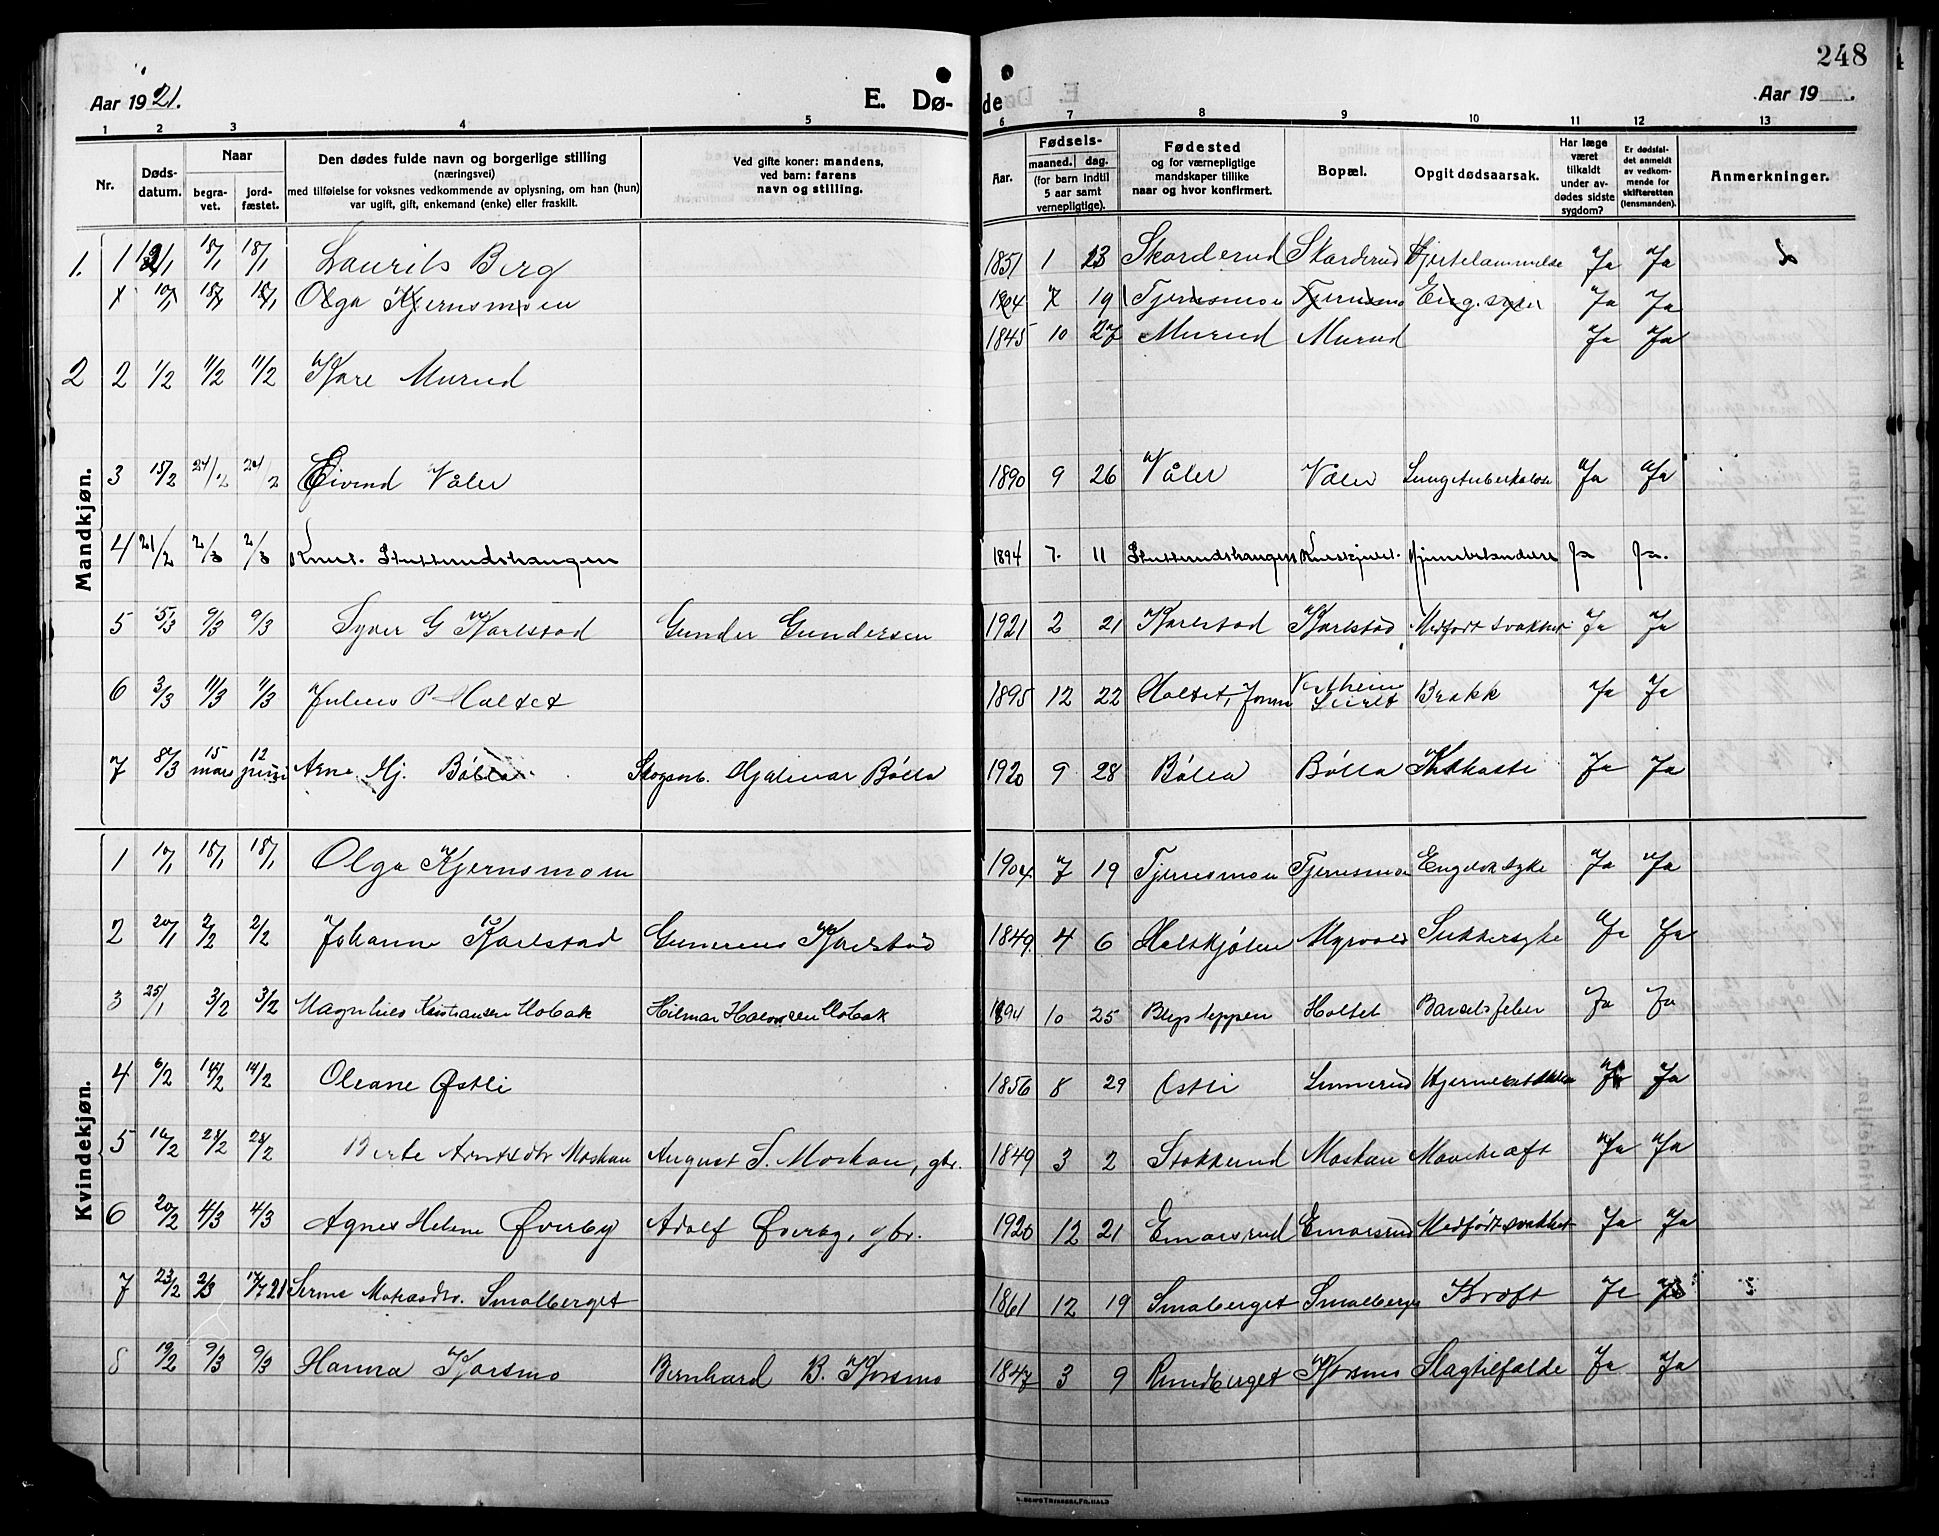 248
Aar 1921. E. Dø-de Aar 19 .
1 2 3 4 5 6 7 8 9 10 11 12 13
Nr. Døds-datum. Naar begra-vet. jord-fæstet. Den dødes fulde navn og borgerlige stilling (næringsvei) med tilføielse for voksnes vedkommende av oplysning, om han (hun) var ugift, gift, enkemand (enke) eller fraskilt. Ved gifte koner: mandens, ved barn: farens navn og stilling. Aar. Fødsels- maaned. dag. (for barn indtil 5 aar samt vernepligtige). Fødested og for værnepligtige mandskaper tillike naar og hvor konfirmert. Bopæl. Opgit dødsaarsak. Har læge været tilkaldt under av-dødes sidste sygdom? Er dødsfal-det anmeldt av vedkom-mende for skifteretten (lensmanden). Anmerkninger.
Mandkjøn.
1. 1 18/1 18/1 Laurits Berg 1851 1 23 Skarderud Skarderud Hjertelammelse Ja Ja
10/1 18/1 18/1 Olga Kjernsmoen 1904 7 19 Tjernsmoen Tjernsmo Eng. syke Ja Ja
1845 10 27 Murud Murud Ja Ja
2 2 1/2 11/2 11/2 Kare Murud
3 15/2 24/2 24/2 Eivind Våler 1890 9 26 Våler Våler Lungetuberkulose Ja Ja
4 21/2 2/3 2/3 Knut Stutterudshaugen 1894 7. 11 Stutterudshaugen Ja Ja.
5 5/3 9/3 9/3 Syver G Karlstad Gunder Gundersen 1921 2 21 Karlstad Karlstad Medfødt svakhet Ja Ja
6 3/3 11/3 11/3 Julius P Holtet 1895 12 22 Holtet, Brakk Ja Ja
7 8/3 15 mars 12 juni Arne Hj. Bölla Skogsarb. Hjalmar Bölla 1920 9 28 Bölla Bölla Kikhoste Ja Ja
Kvindekjøn.
1 10/1 18/1 18/1 Olga Kjernsmoen 1904 7 19 Tjernsmoen Tjernsmoe Engelsk syke Ja Ja
2 20/1 2/2 2/2 Johanne Karlstad Gunerius Karlstad 1849 4 6 Halskjølen Myrvold Sukkersyke Ja Ja
3 25/1 3/2 3/2 Magnhild Kristiansen Mobak Hilmar Halvorsen Mobak 1894 10 25 Holtet Barselsfeber Ja Ja
4 6/2 14/2 14/2 Oleane Østli 1856 8 29 Østli Sunnerud Ja Ja
5 16/2 28/2 28/2 Berte Arntsdtr Moskau August S. Moskau, gbr. 1849 3 2 Stokkerud Moskau Mavekræft Ja Ja
6 20/2 4/3 4/3 Agnes Helene Øverby Adolf Øverby, gbr. 1920 12 21 Emarsrud Emarsrud Medfødt svakhet Ja Ja
7 23/2 2/3 17/7 21 Serine Matiasdtr. Smalberget 1861 12 19 Smalberget Smalberget Kræft Ja Ja
8 19/2 9/3 9/3 Hanna Korsmo Bernhard B. Korsmo 1847 3 9 Rundberget Korsmo Slagtilfælde Ja Ja